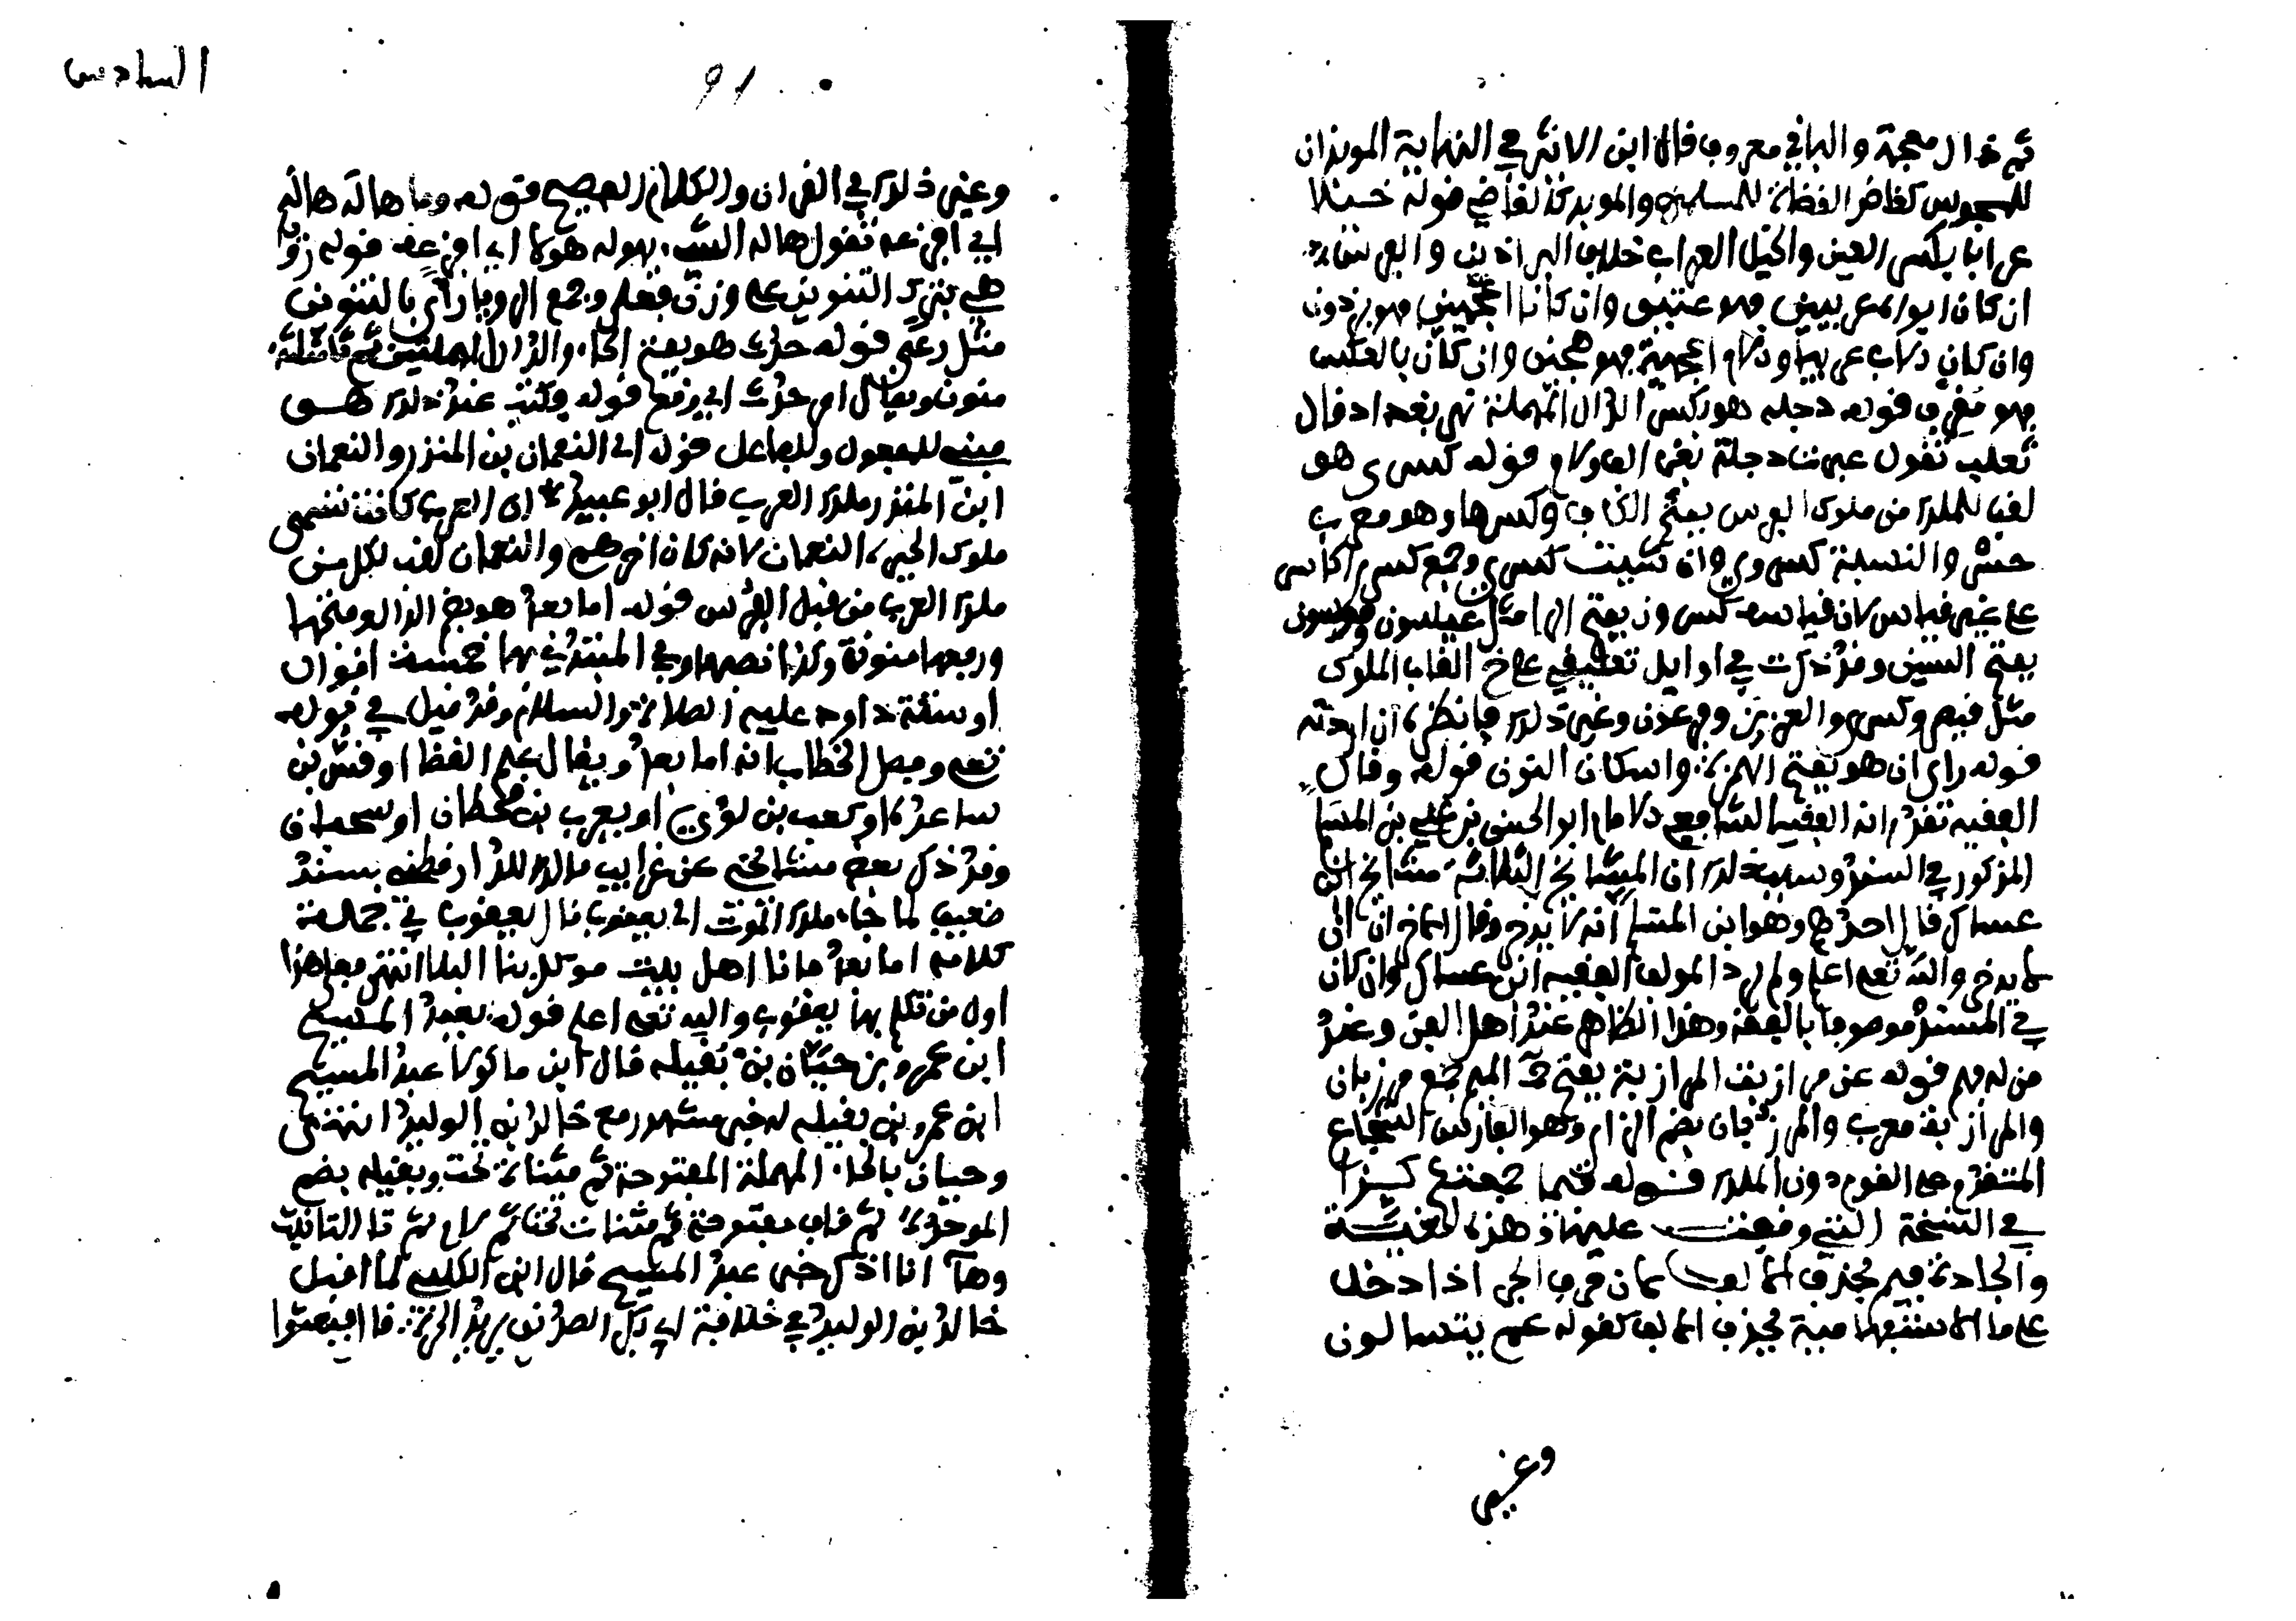 ثم ذال معجمة والباقي معروف قال ابن الاثير في النهاية الموبذان
للمجوس كقاضي القضاة للمسلمين والموبذ كالقاضي قوله خيلا
عرابا بكسر العين والخيل العراب خلاف البراذين والفرس
ان كان ابواه عربيين فهو عتيق وان كانا اعجميين فهو برذون
وان كان الاب عربيا والام اعجمية فهو هجين وان كان بالعكس
فهو مقرف قوله دجلة هو بكسر الدال المهملة نهر بغداد قال
ثعلب تقول عبرت دجلة بغير الف ولام قوله كسرى هو
لقب للملك من ملوك الفرس بفتح الكاف وكسرها وهو معرب
خسرو والنسبة كسروي وان شيت كسري وجمع كسرى اكاسرة
على غير قياس لان قياسه كسرون بفتح الرا مثل عيسون وموسون
بفتح السين وقد ذكرت في اوايل تعليقي على القاب الملوك
مثل قيصر وكسرى والعزيز وفرعون وغير ذلك فانظره ان اردته
قوله راى ان هو بفتح الهمزة واسكان النون قوله وقال
الفقيه تقدم انه الفقيه الشافعي الامام ابو الحسن بن علي بن المسلم
المذكور في السند وسبب ذلك ان المشايخ الثلاثة مشايخ ابن
عساكر قال احدهم وهو ابن المسلم انه لا يدخر وقال الاخران الى
لا يدخر والله تعلى اعلم ولم يرد المولف الفقيه ابن عساكر وان كان
في المسند موصوفا بالفقه وهذا الظاهر عند اهل الفن وعند
من له فهم قوله عن مرازبة المرازبة بفتح الميم جمع مرزبان
والمرازبة معرب والمرزبان بضم الزاى وهو الفارس الشجاع
المتقدم على القوم دون الملك قوله فيما جمعتم كذا
في النسخة التي وقفت عليها اذ هذه
والجادة فيم بحذف الالف لان حرف الجر اذا دخل
على ما الاستفهامية بحذف الالف كقوله عم يتسالون
وغير
السادس
91
وغير ذلك في القران والكلام الفصيح قوله وما هاله هاله
اي افزعه تقول هاله الشيء يهوله هولا اي افزعه قوله رؤيا
هي بترك التنوين على وزن فعلى وجمع الرويا رؤى بالتنوين
مثل رعى قوله حدث هو بفتح الحاء والدال المهملتين ثم ثا مثلثة
منون ويقال اى حدث اي وقع قوله وكتب عند ذلك هو
مبني للمفعول وللفاعل قوله الى النعمان بن المنذر والنعمان
ابن المنذر ملك العرب قال ابو عبيدة ان العرب كانت تسمي
ملوك الحيرة النعمان لانه كان اخرهم والنعمان لقب لكل من
ملك العرب من قبل الفرس قوله اما بعد هو بضم الدال وفتحها
ورفعها منونة وكذا نصبها وفي المبتدئ بها خمسة اقوال
او ستة داود عليه الصلاة والسلام وقد قيل في قوله
تعلى وفصل الخطاب انه اما بعد ويقال بهم الفظ او قس بن
ساعدة او كعب بن لؤي او يعرب بن قحطان او سحبان
وقد ذكر بعض مشايخي عن غرايب مالك للدارقطني بسند
ضعيف لما جاء ملك الموت الى يعقوب قال يعقوب في جملة
كلامه اما بعد فانا اهل بيت موكل بنا البلا انتهى فعلى هذا
اول من تكلم بها يعقوب والله تعلى اعلم قوله بعبد المسيح
ابن عمرو بن حيان بن بقيلة قال ابن ماكولا عبد المسيح
ابن عمرو بن بقيلة له خبر مشهور مع خالد بن الوليد انتهى
وحيان بالحاء المهملة المفتوحة ثم مثناة تحت وبقيلة بضم
الموحدة ثم قاف مفتوحة ثم مثنات تحت ثم لام ثم تا التانيث
وها انا اذكر خبر عبد المسيح قال ابن الكلبي لما اقبل
خالد بن الوليد في خلافة ابي بكر الصديق يريد الحيرة قال ابعثوا